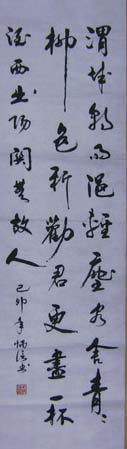 渭城朝雨浥輕塵客舍青々
柳色新勸君更盡一杯
酒西出陽關無故人
己卯年炳书